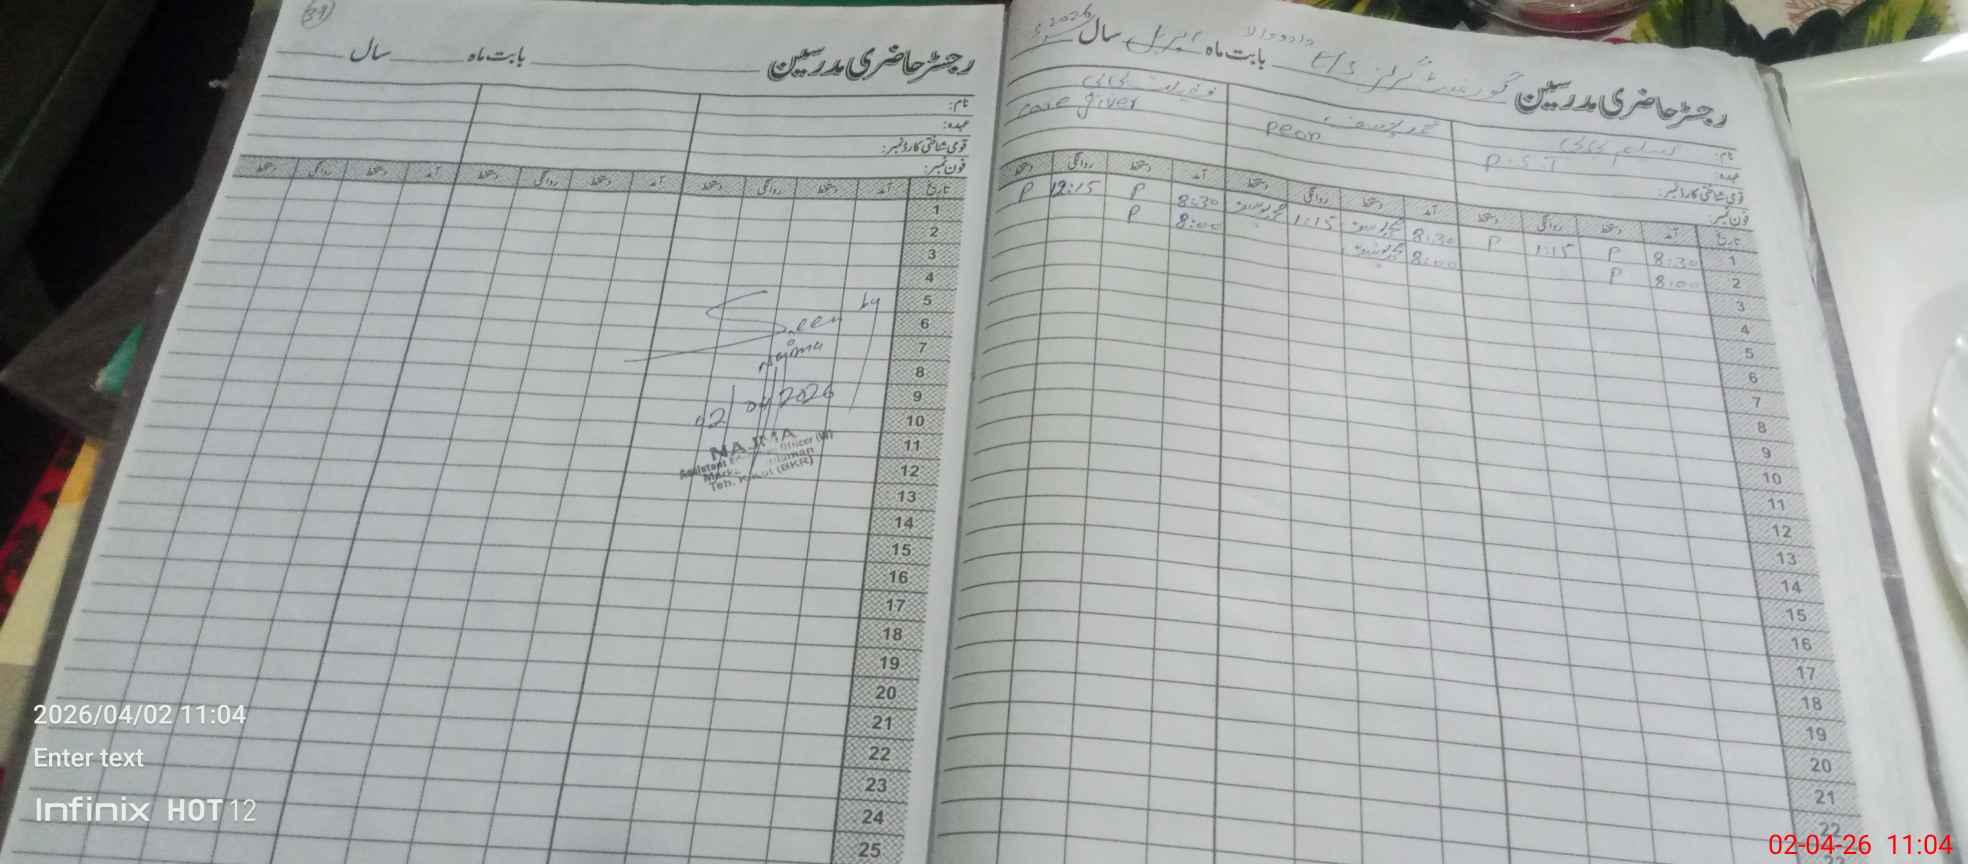 39
رجسٹر حاضری مدرسین ـــــ بابت ماہ ـــــ سال ـــــ
نام:
عہدہ:
قومی شناختی کارڈ نمبر:
فون نمبر:
تاریخ آمد دستخط روانگی دستخط آمد دستخط روانگی دستخط آمد دستخط روانگی دستخط
1
2
3
4
5
6
7
8
9
10
11
12
13
14
15
16
17
18
19
20
21
22
23
24
25
Seen by
Najma
02/04/2026
NAJMA
Officer (W)
Teh.
رجسٹر حاضری مدرسین گورنمنٹ گرلز بابت ماہ اپریل سال 2026
نام:
عہدہ: P.S.T peon care giver
قومی شناختی کارڈ نمبر:
فون نمبر:
تاریخ آمد دستخط روانگی دستخط آمد دستخط روانگی دستخط آمد دستخط روانگی دستخط
1 8:30 P 1:15 P 8:30 محمد یوسف 1:15 محمد یوسف 8:30 P 12:15 P
2 8:00 P 8:00 محمد یوسف 8:00 P
3
4
5
6
7
8
9
10
11
12
13
14
15
16
17
18
19
20
21
22
2026/04/02 11:04
Enter text
Infinix HOT 12
02-04-26 11:04